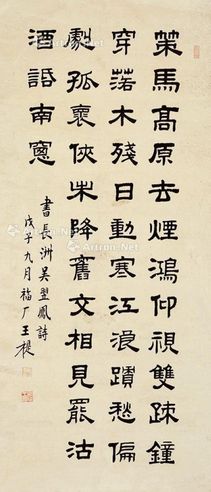 策馬高原去煙鴻仰視雙疎鐘
穿落木殘日動寒江浪蹟愁偏
劇孤褱俠未降舊交相見罷沽
酒話南窻
書長洲吳翌鳳詩
戊子九月福厂王禔
Artron.Net